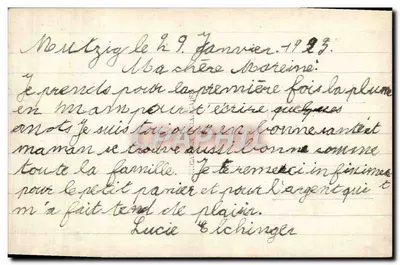 Mutzig le 29. Janvier. 1923.
Ma chère Moreine!
Je prends pour la première fois la plume
en main pour t'écrire quelques
mots. Je suis toujours en bonne santé et
maman se trouve aussi bonne comme
toute la famille. Je te remerci infiniment
pour le petit panier et pour l'argent qui
m'a fait tend de plaisir.
Lucie Elchinger